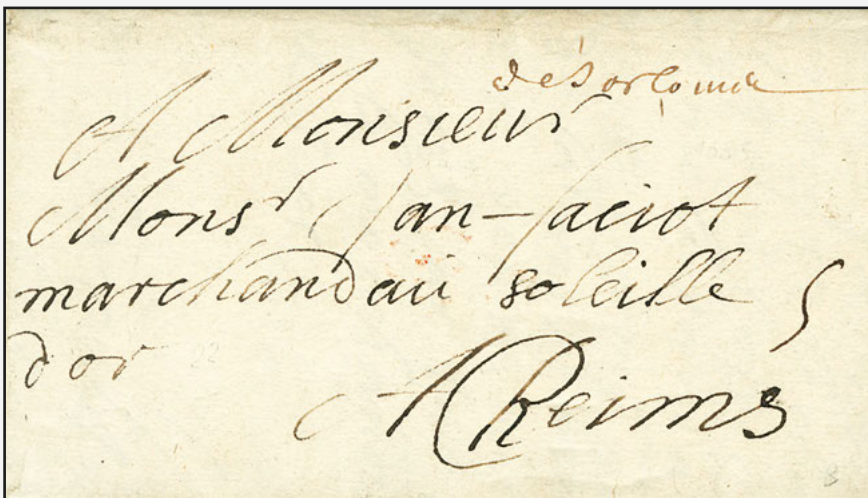 de Sarlouis
A Monsieur
Monsr Jan-faciot
marchand au soleille 5
d'or
A Reims